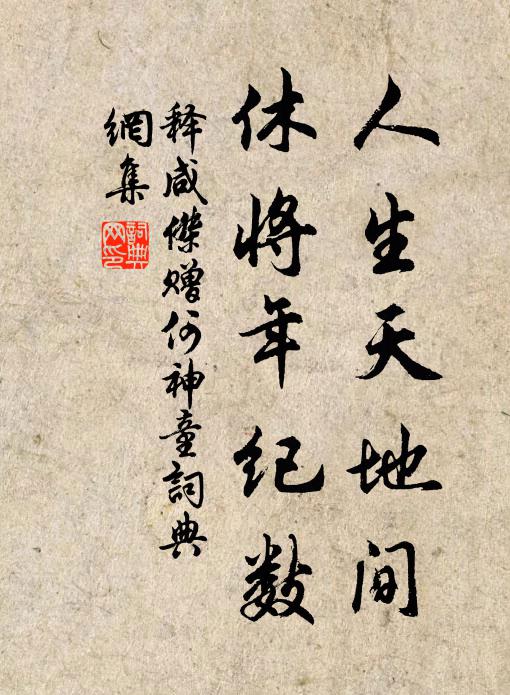 人生天地间
休将年纪数
释咸傑赠何神童詞典
網集
詞典
网印